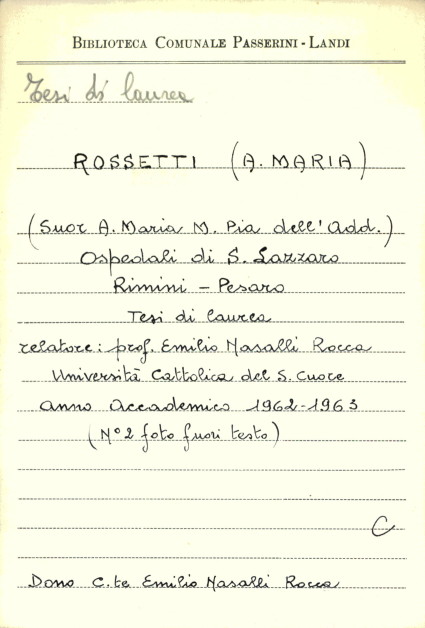 BIBLIOTECA COMUNALE PASSERINI - LANDI
Tesi di laurea
ROSSETTI (A. MARIA)
(Suor A. Maria M. Pia dell'Add.)
Ospedali di S. Lazzaro
Rimini - Pesaro
Tesi di laurea
relatore: prof. Emilio Nasalli Rocca
Università Cattolica del S. Cuore
Anno Accademico 1962-1963
(N° 2 foto fuori testo)
C
Dono C.te Emilio Nasalli Rocca